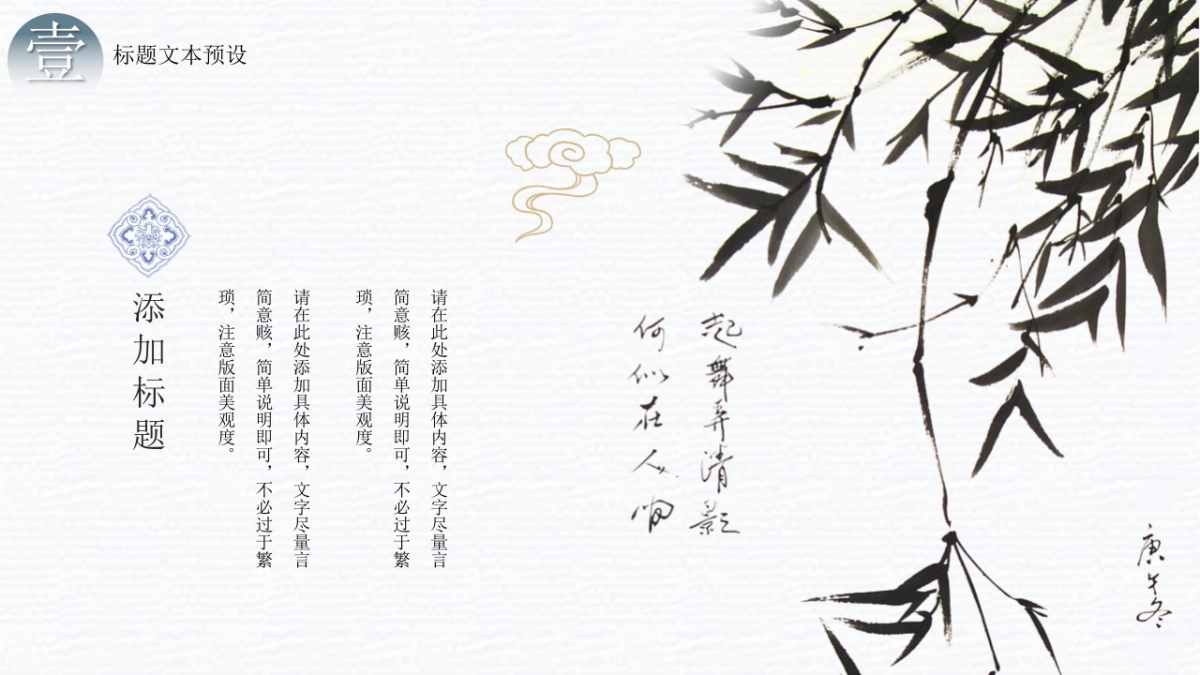 壹
标题文本预设
添加标题
请在此处添加具体内容，文字尽量言
简意赅，简单说明即可，不必过于繁
琐，注意版面美观度。
请在此处添加具体内容，文字尽量言
简意赅，简单说明即可，不必过于繁
琐，注意版面美观度。
起舞弄清影
何似在人间
庚午冬